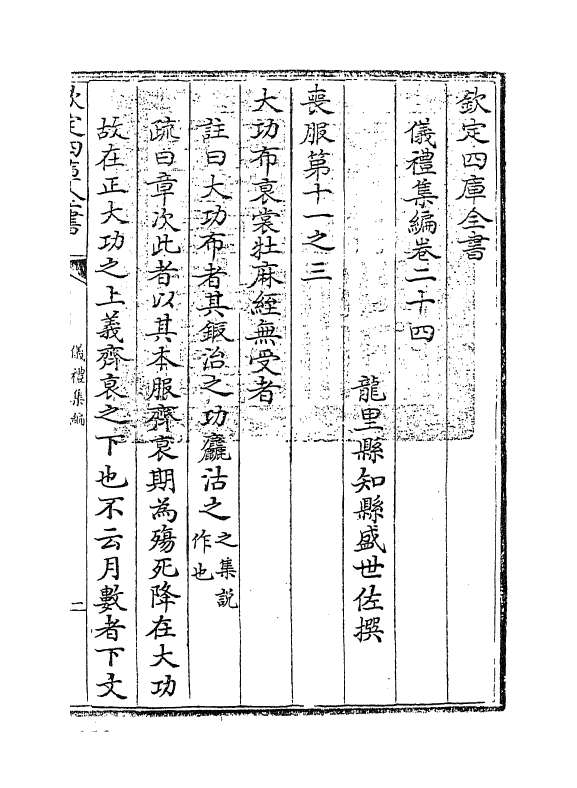 欽定四庫全書
儀禮集編卷二十四
龍里縣知縣盛世佐撰
喪服第十一之三
大功布衰裳牡麻絰無受者
註曰大功布者其鍛治之功麤沽之之集說作也
疏曰章次此者以其本服齊衰期為殤死降在大功
故在正大功之上義齊衰之下也不云月數者下文
欽定四庫全書
儀禮集編